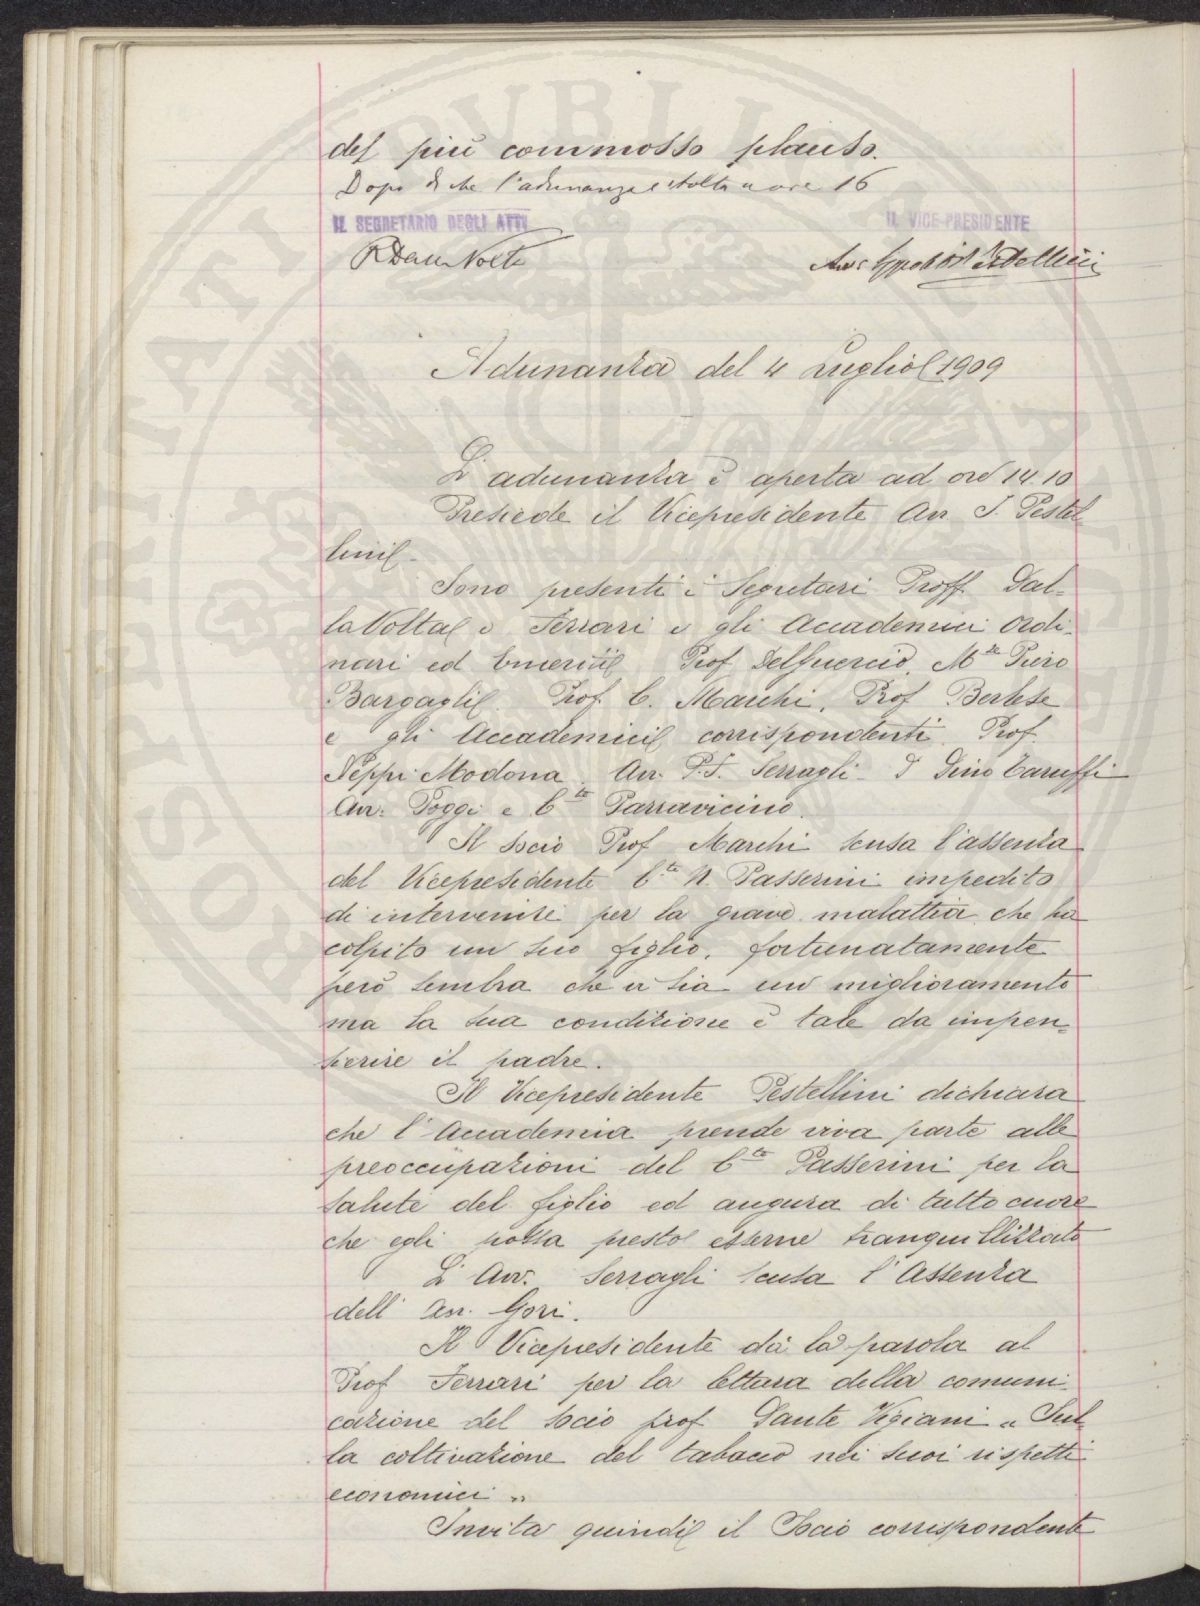 del più commosso plauso.
Dopo di che l'adunanza è sciolta a ore 16
IL SEGRETARIO DEGLI ATTI
IL VICE-PRESIDENTE
R Dalla Volta
Avv. Ippolito Pestellini
Adunanza del 4 Luglio 1909
L'adunanza è aperta ad ore 14.10
Presiede il Vicepresidente Avv. I. Pestel
lini.
Sono presenti i Segretari Proff. Dal-
la Volta e Ferrari e gli Accademici Ordi-
nari ed Emeriti Prof Del Guercio, M.se Piero
Bargagli. Prof. C. Marchi, Prof Berlese
e gli Accademici corrispondenti. Prof.
Neppi Modona. Avv. P. F. Serragli - D Dino Taruffi
Avv. Poggi e C.te Parravicino.
Il socio Prof Marchi scusa l'assenza
del Vicepresidente C.te N. Passerini impedito
di intervenire per la grave malattia che ha
colpito un suo figlio, fortunatamente
però sembra che vi sia un miglioramento
ma la sua condizione è tale da impen-
sierire il padre.
Il Vicepresidente Pestellini dichiara
che l'Accademia prende viva parte alle
preoccupazioni del C.te Passerini per la
salute del figlio ed augura di tutto cuore
che egli possa presto esserne tranquillizzato
L'Avv. Serragli scusa l'Assenza
dell'Avv. Gori.
Il Vicepresidente dà la parola al
Prof Ferrari per la lettura della comuni
cazione del socio prof Dante Vigiani "Sul-
la coltivazione del tabacco nei suoi rispetti
economici"
Invita quindi il Socio corrispondente